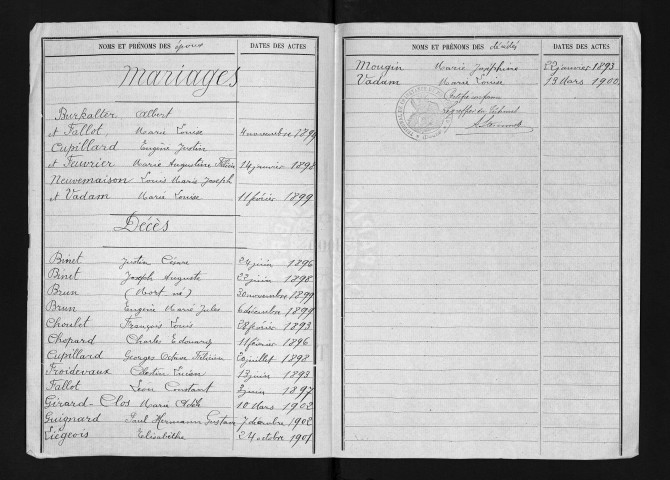 NOMS ET PRÉNOMS DES époux DATES DES ACTES
Mariages
Burkalter Albert
et Fallot Marie Louise 4 novembre 1899
Cupillard Eugène Justin
et Fauvrier Marie Augustine 14 janvier 1898
Neuvemaison Louis Marie Joseph
et Vadam Marie Louise 11 février 1899
Décès
Binet Justin César 24 juin 1896
Binet Joseph Auguste 22 juin 1898
Brun (Mort né) 30 novembre 1899
Brun Eugène Marie Jules 6 décembre 1899
Choulet François Louis 28 février 1893
Chopard Charles Edouard 11 février 1896
Cupillard Georges Octave Félicien 20 juillet 1898
Froidevaux Célestin Lucien 13 juin 1893
Fallot Léon Constant juin 1897
Girard-Clos Marie Adèle 10 Mars 1902
Guignard Paul Hermann Gustave 7 décembre 1902
Liégeois Elisabethe 24 octobre 1901
NOMS ET PRÉNOMS DES décédés DATES DES ACTES
Mougin Marie Joséphine 22 janvier 1893
Vadam Marie Louise 13 Mars 1900
Certifié conforme
Le greffier du Tribunal